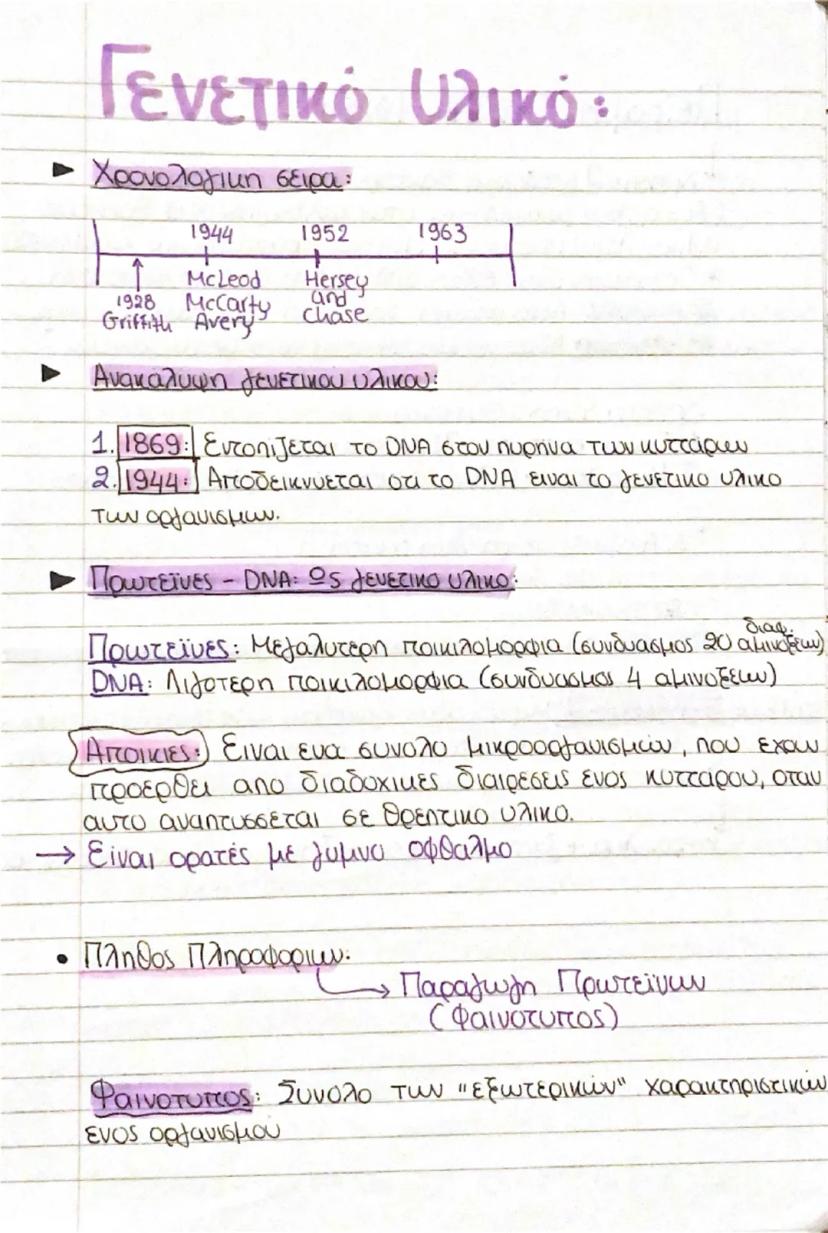 Γενετικό Υλικό:
► Χρονολογικη σειρα:
1944 1952 1963
1928 Griffith
McLeod McCarty Avery
Hersey and Chase
► Ανακάλυψη γενετικου υλικου:
1. 1869: Εντοπιζεται το DNA στον πυρηνα των κυτταρων
2. 1944: Αποδεικνυεται οτι το DNA ειναι το γενετικο υλικο
των οργανισμων.
► Πρωτεϊνες - DNA: Ως γενετικο υλικο:
Πρωτεϊνες: Μεγαλυτερη ποικιλομορφια (συνδυασμος 20 διαφ. αμινοξεων)
DNA: Λιγοτερη ποικιλομορφια (συνδυασμος 4 αμινοξεων)
Αποικιες: Ειναι ενα συνολο μικροοργανισμών, που εχουν
προέρθει απο διαδοχικες διαιρεσεις ενος κυτταρου, οταν
αυτο αναπτυσσεται σε θρεπτικο υλικο.
→ Είναι ορατές με γυμνο οφθαλμο
• Πληθος Πληροφοριων:
→ Παραγωγη Πρωτεϊνων
(Φαινοτυπος)
Φαινοτυπος: Συνολο των "εξωτερικών" χαρακτηριστικών
ενος οργανισμου